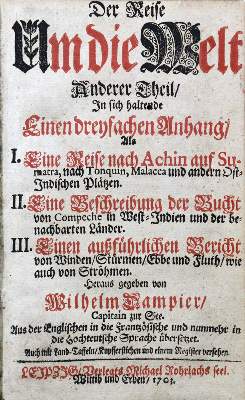 Der Reise
Um die Welt
Anderer Theil/
In sich haltende
Einen dreyfachen Anhang/
Als
I. Eine Reise nach Achin auf Su-
matra, nach Tonquin, Malacca und andern Ost-
Indischen Plätzen.
II. Eine Beschreibung der Bucht
von Compeche in West-Indien und der be-
nachbarten Länder.
III. Einen außführlichen Bericht
von Winden/Stürmen/Ebbe und Fluth/wie
auch von Ströhmen.
Heraus gegeben von
Wilhelm Dampier/
Capitain zur See.
Aus der Englischen in die Frantzösische und nunmehr in
die Hochteutsche Sprache übersetzet.
Auch mit Land-Taffeln/Kupfferstichen und einem Register versehen.
LEIPZIG/Verlegts Michael Rohrlachs seel.
Wittib und Erben/1703.